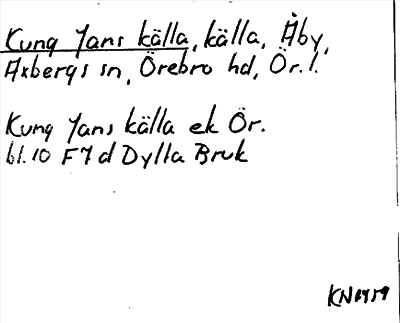 Kung Jans källa, källa, Åby,
Axbergs sn, Örebro hd, Ör. l.
Kung Jans källa ek Ör.
bl. 10 F7d Dylta Bruk